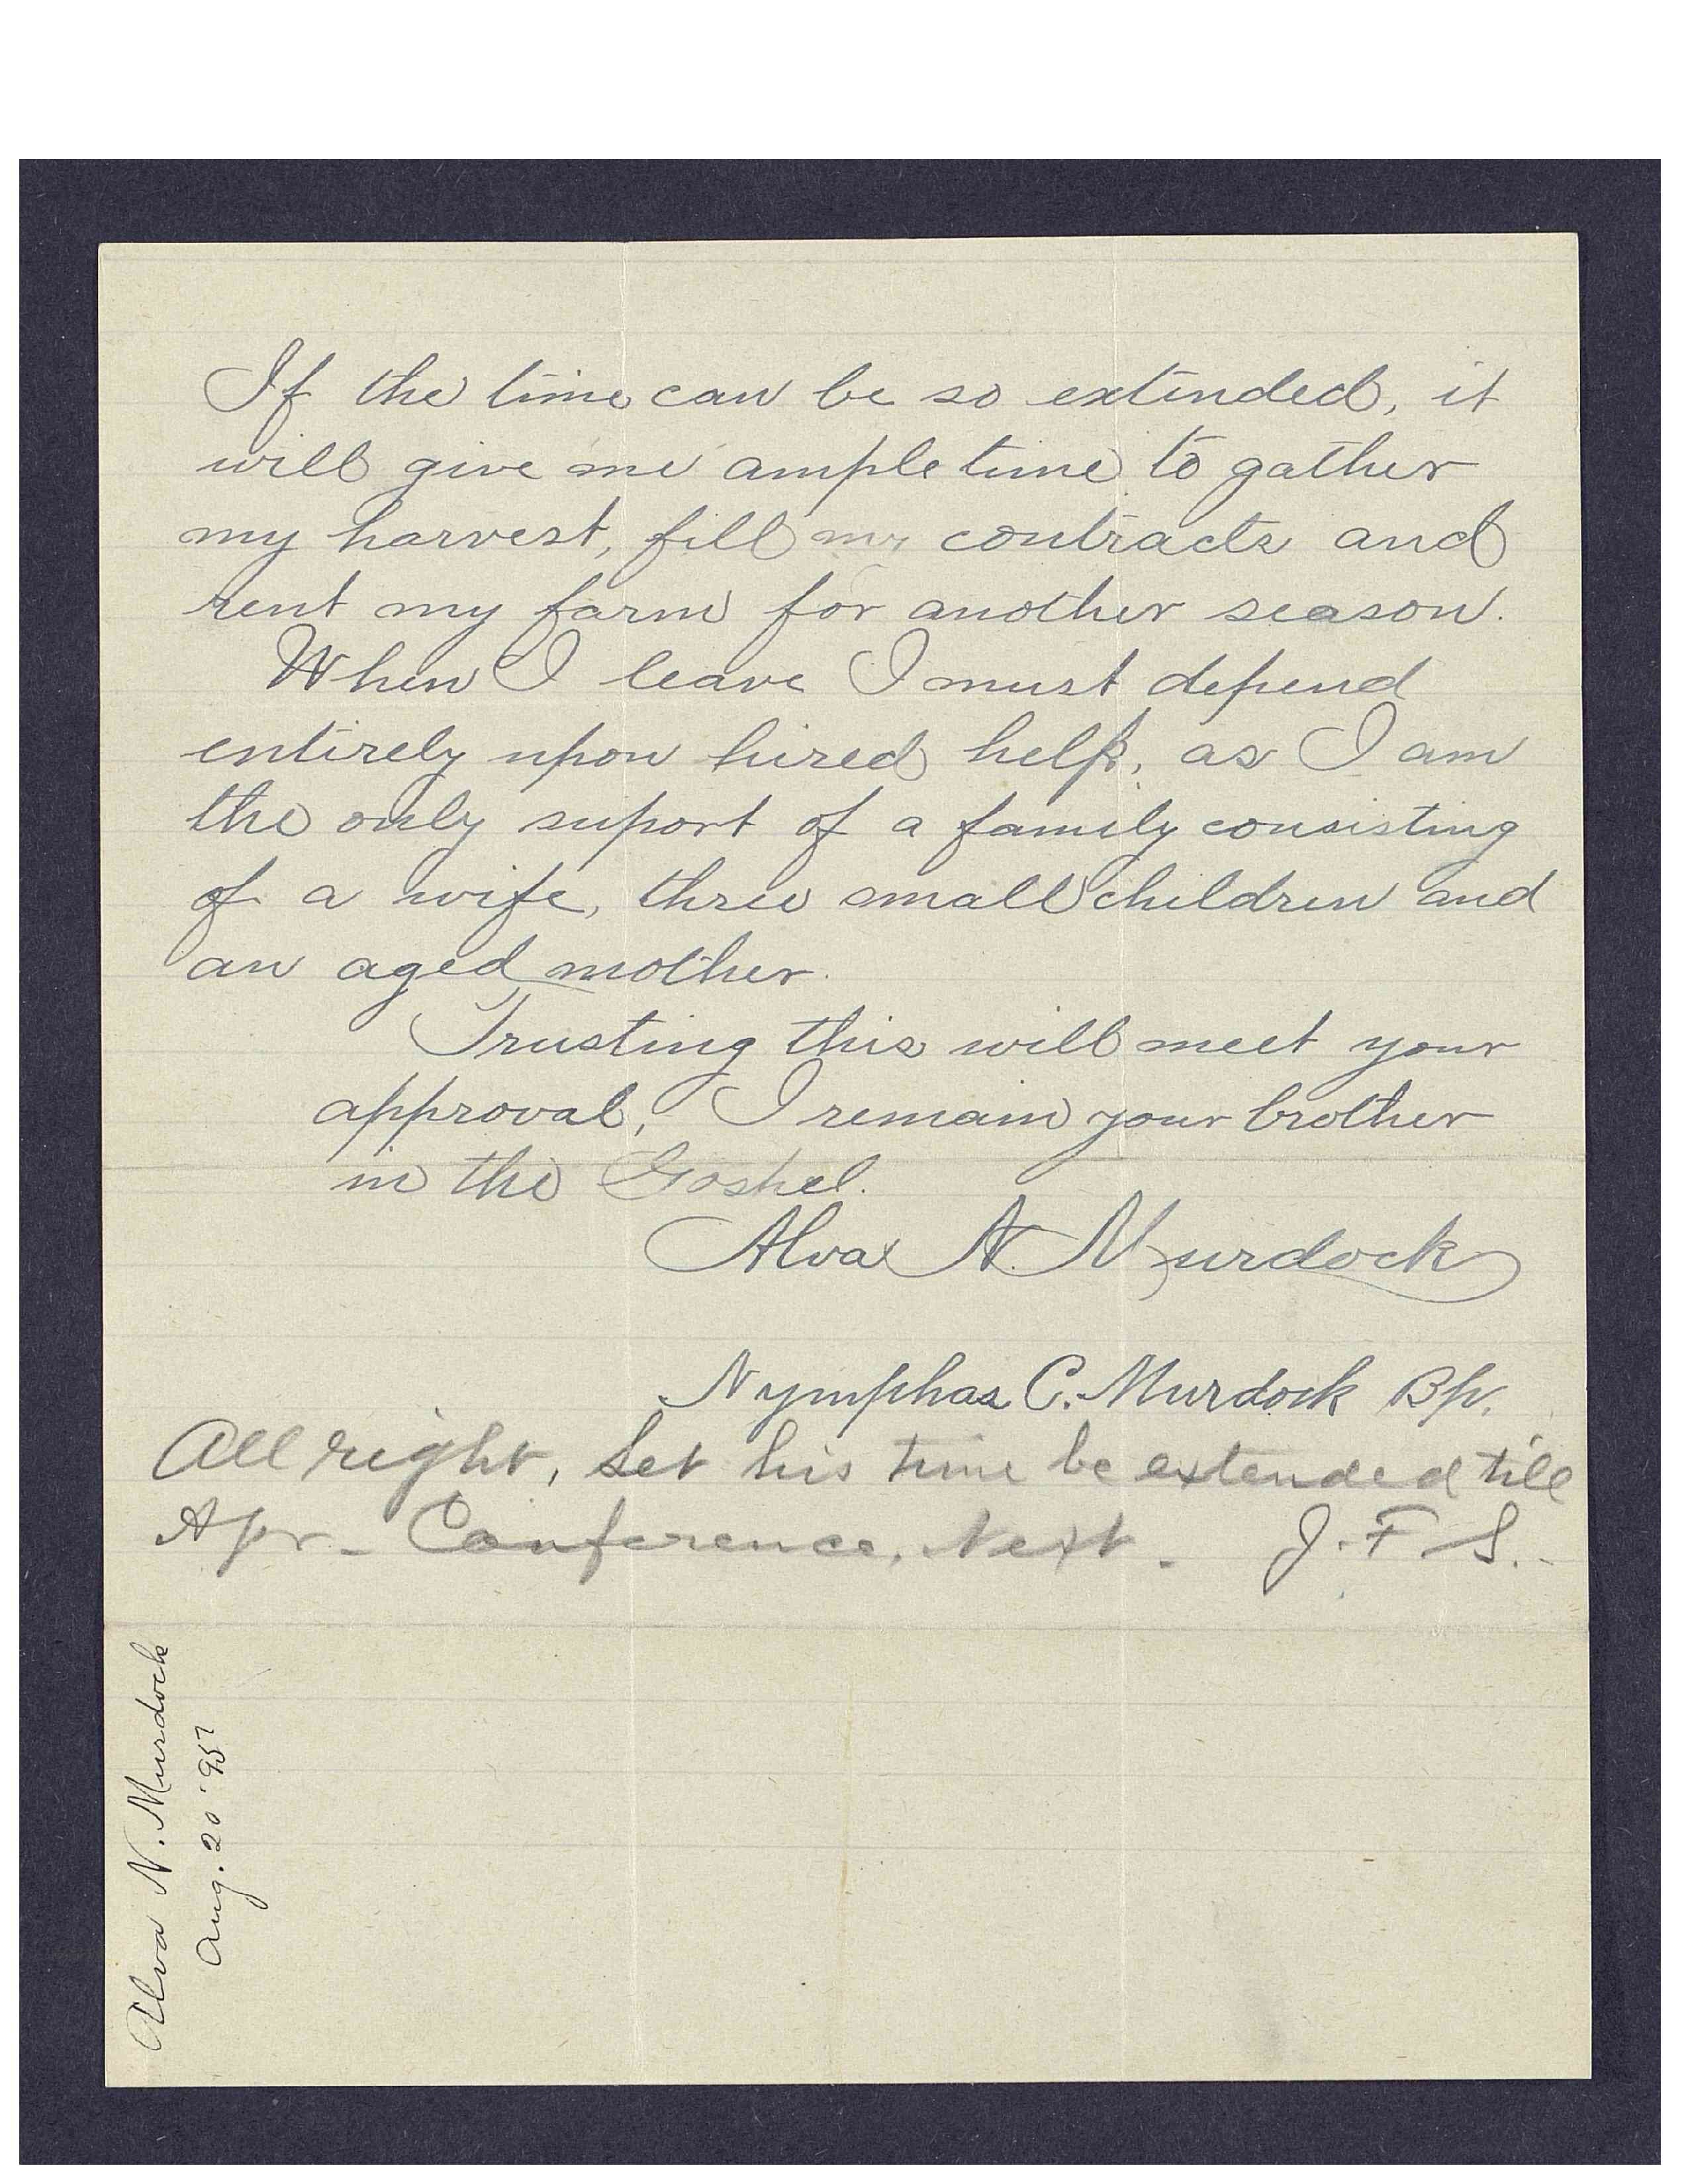 If the time can be so extended, it
will give me ample time to gather
my harvest, fill my contracts and
rent my farm for another season.
When I leave I must depend
entirely upon hired help, as I am
the only suport of a family consisting
of a wife, three small children and
an aged mother.
Trusting this will meet your
approval, I remain your brother
in the Gospel.
Alva N. Murdock
Nymphas C. Murdock Bp.
All right, Let his time be extended till
Apr - Conference, Next. J. F. S.
Alva N. Murdock
Aug. 20 '95